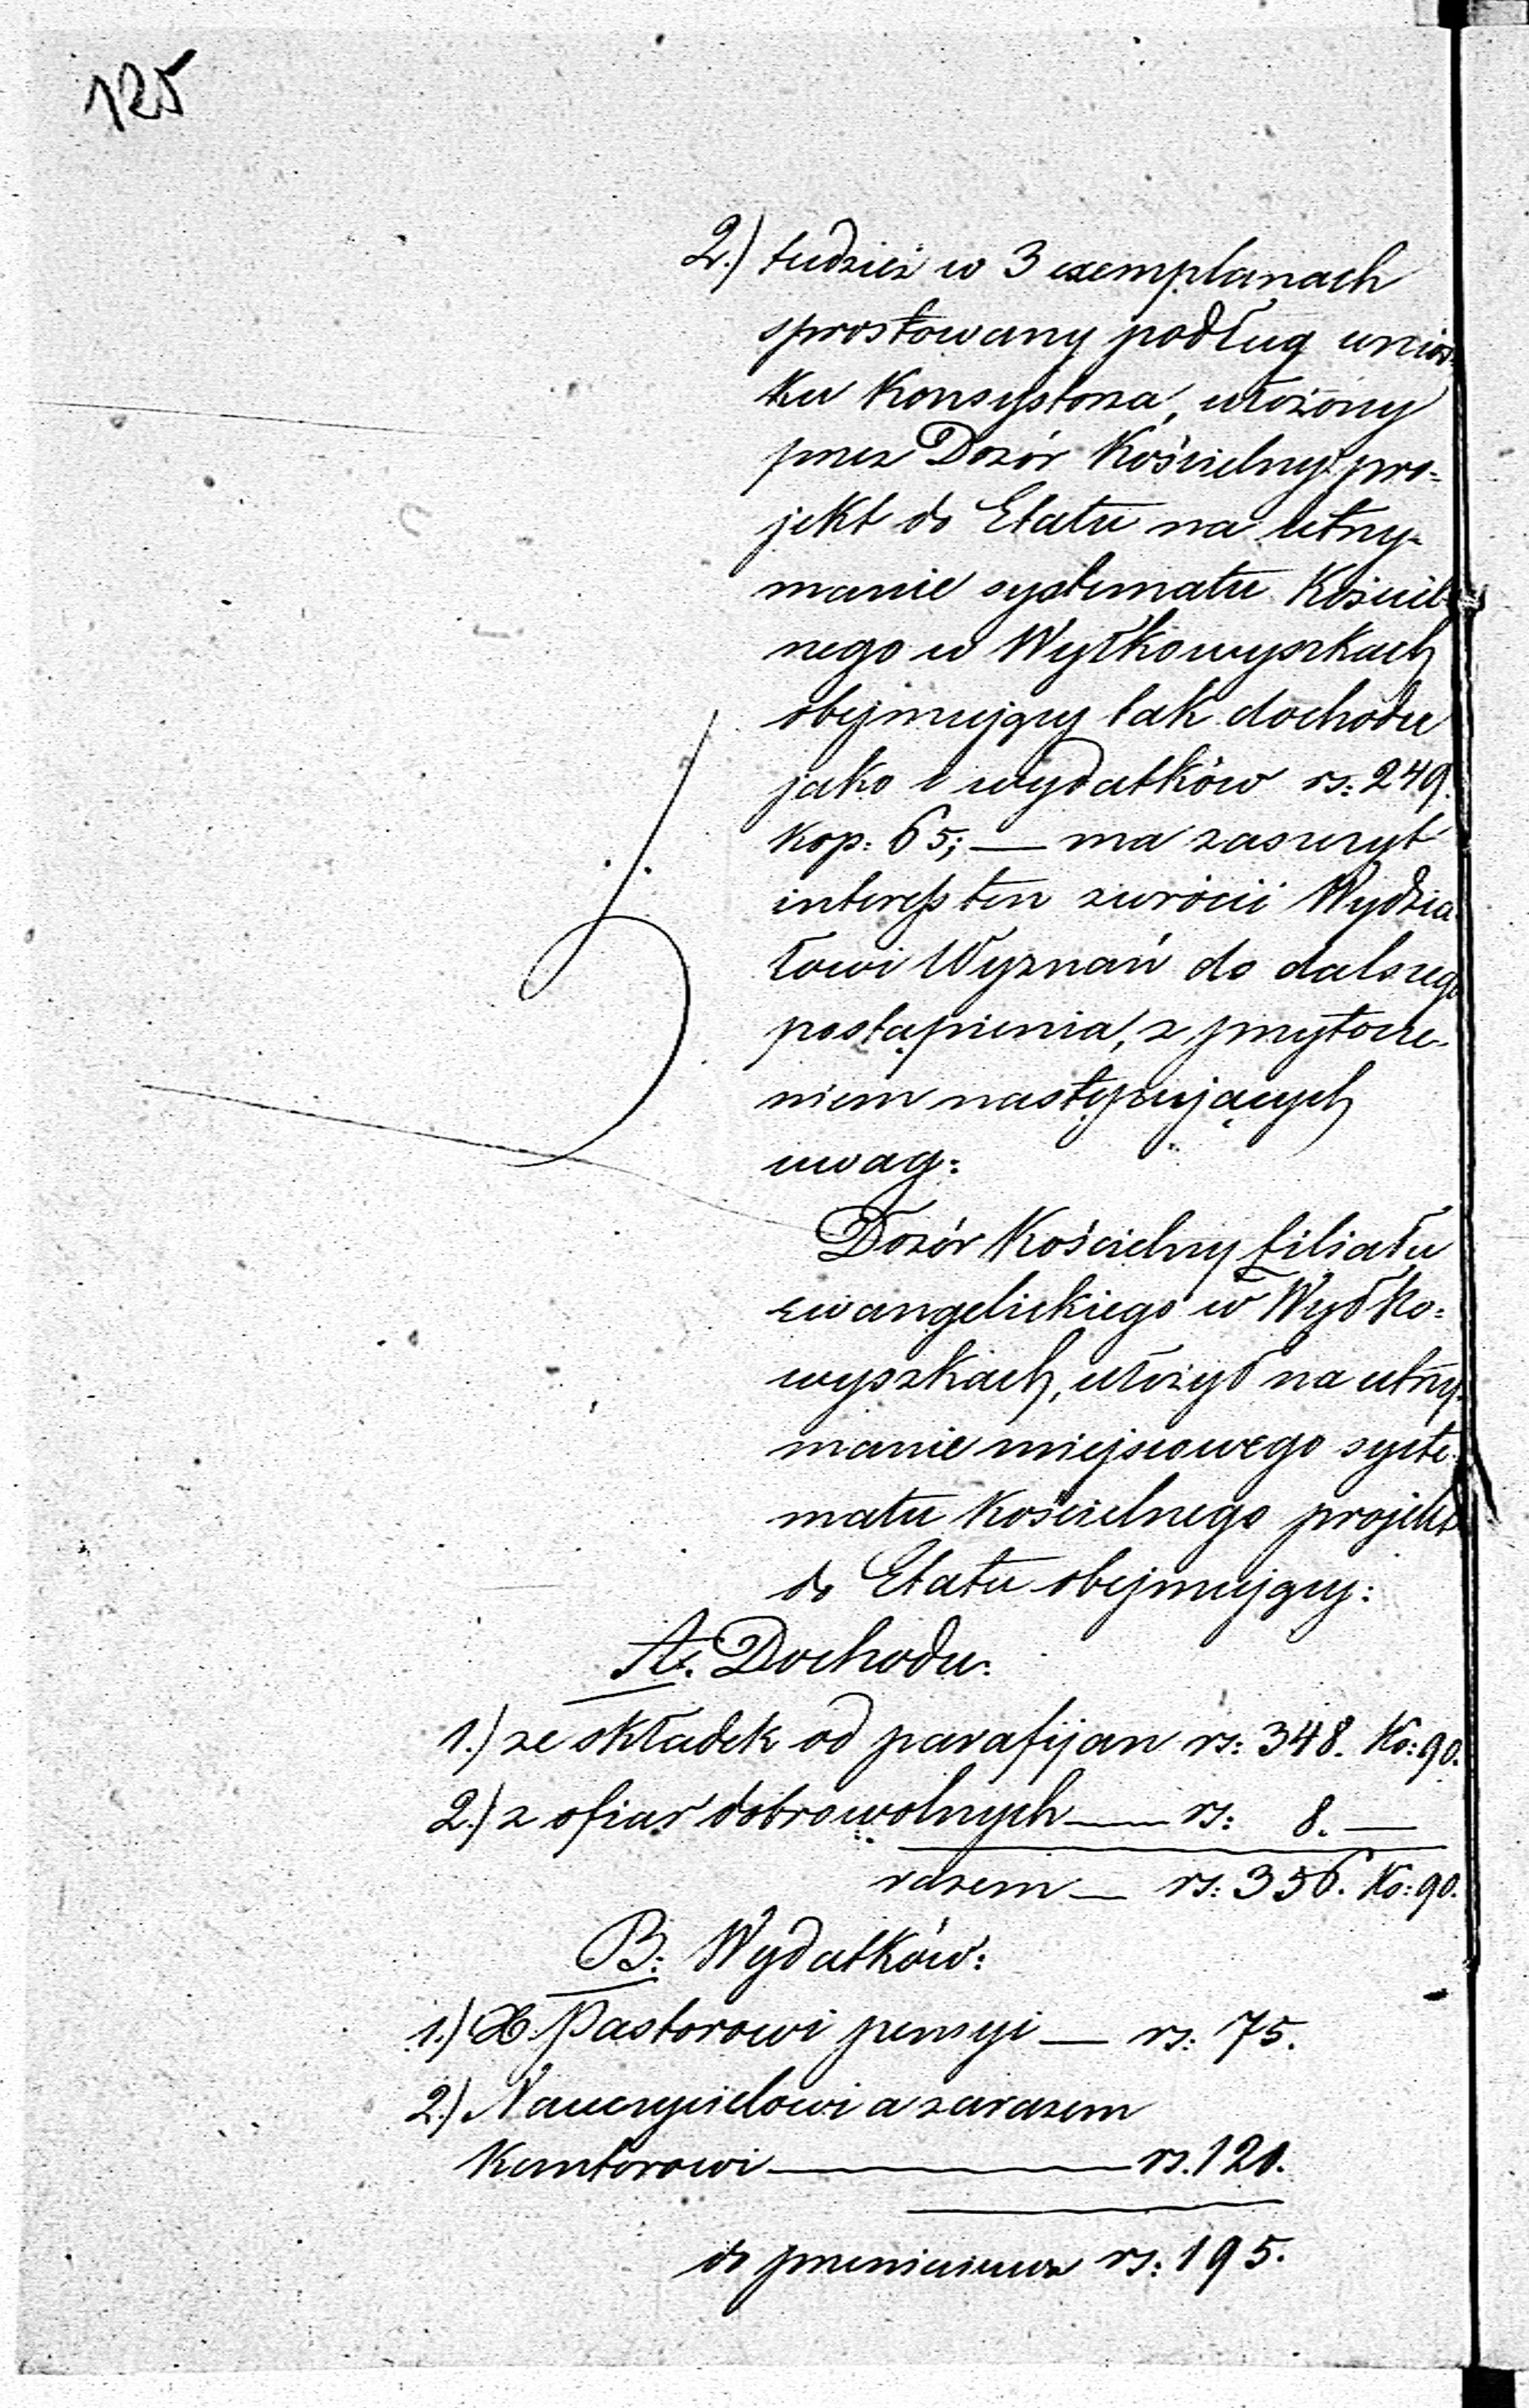 125
2.) tudzież w 3 exemplarzach
sprostowany podług wnios-
ku Konsystorza, ułożony
przez Dozór Kościelny pro=
jekt do Etatu na utrzy-
manie systematu Kościel-
nego w Wyłkowyszkach
obejmujący tak dochodu
jako i wydatków rs: 249.
kop: 65; — ma zaszczyt
interess ten zwrócić Wydzia-
łowi Wyznań do dalszego
postąpienia, z przytocze-
niem następujących
uwag:
Dozór Kościelny filiału
ewangelickiego w Wyłko=
wyszkach, ułożył na utrzy-
manie miejscowego syste-
matu kościelnego projekt
do Etatu obejmujący:
A. Dochodu:
1.) ze składek od parafijan rs: 348. Ko: 90.
2.) z ofiar dobrowolnych — rs: 8. —
razem — rs: 356. Ko: 90.
B: Wydatków:
1.) X. Pastorowi pensyi — rs: 75.
2.) Nauczycielowi a zarazem
Kantorowi — rs. 120.
do przeniesienia rs: 195.